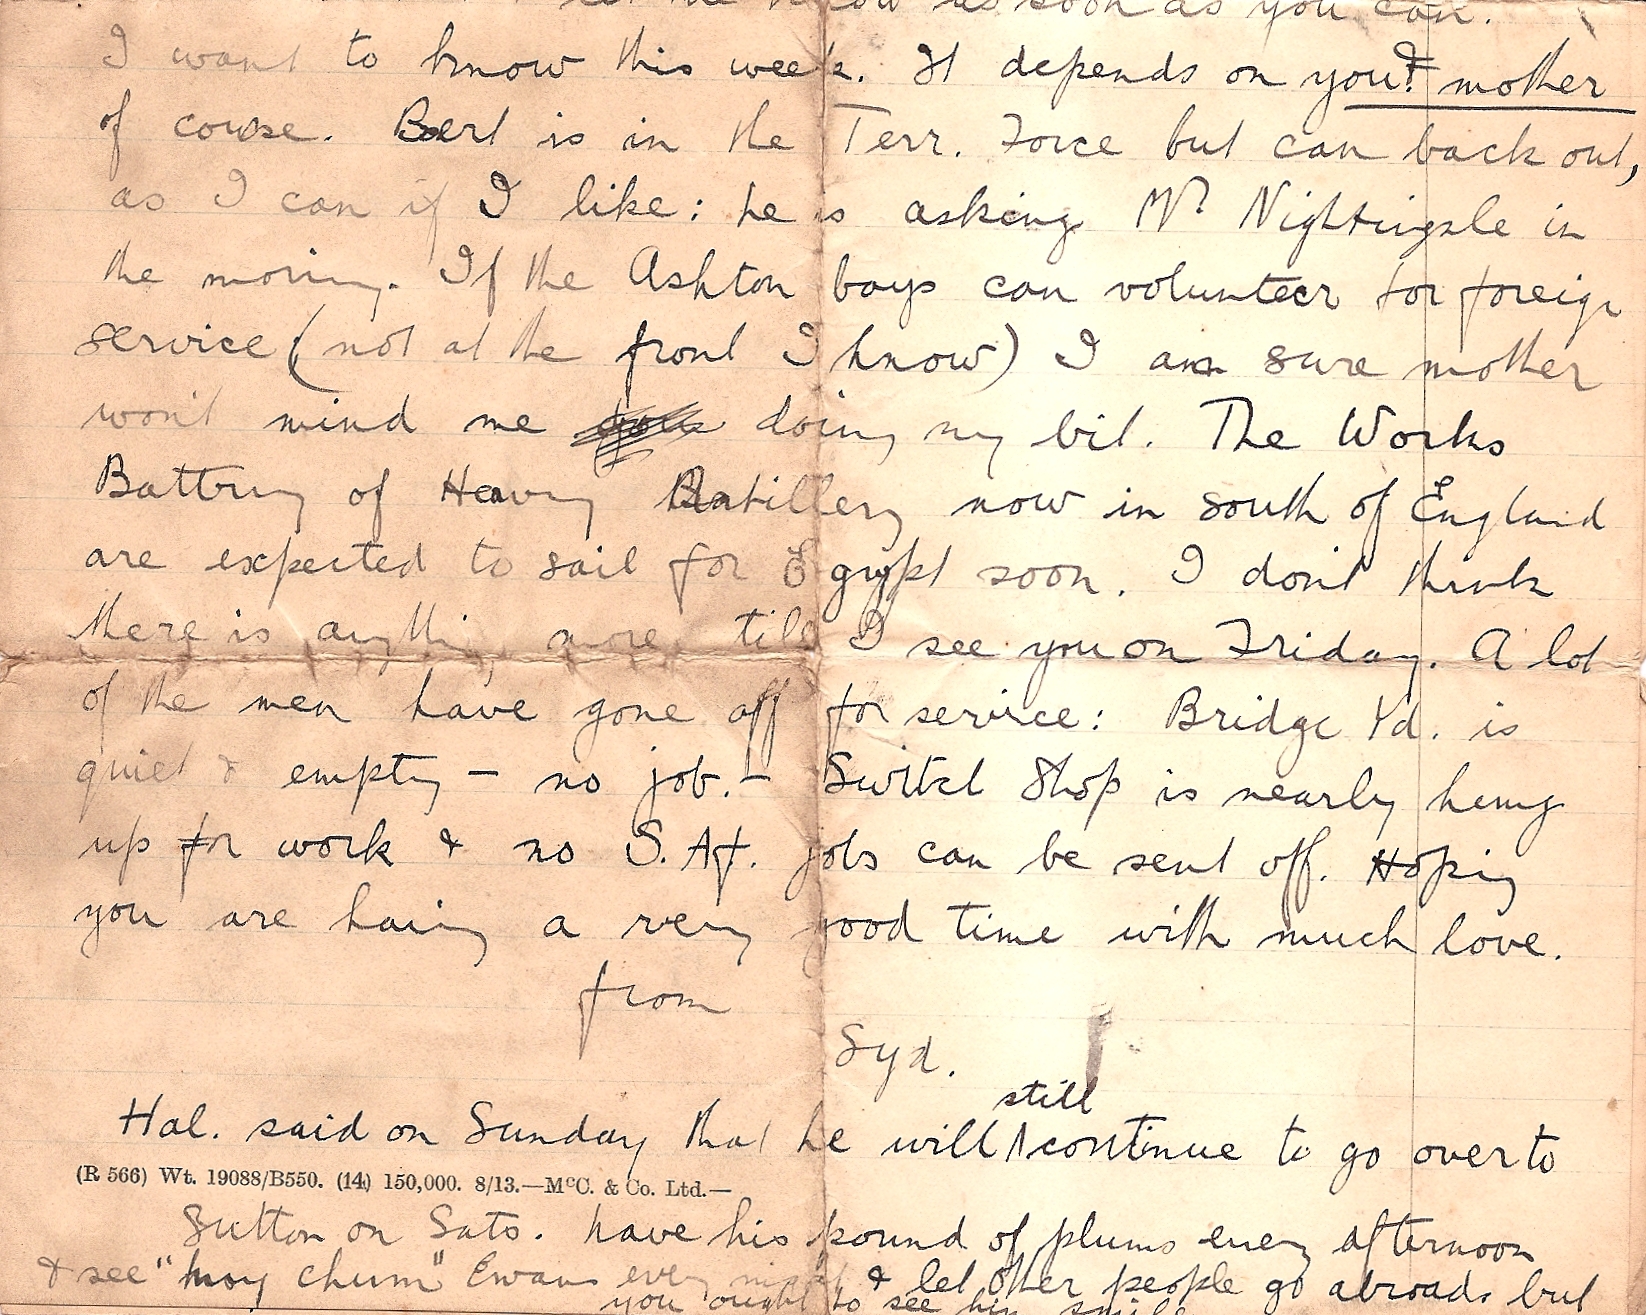 let me know as soon as you can.
I want to know this week. It depends on you & mother
of course. Bert is in the Terr. Force but can back out,
as I can if I like: he is asking Mr. Nightingale in
the morning. If the Ashton boys can volunteer for foreign
service (not at the front I know) I am sure mother
won't mind me doing my bit. The Works
Battery of Heavy Artillery now in south of England
are expected to sail for Egypt soon. I don't think
there is anything more till I see you on Friday. A lot
of the men have gone off for service: Bridge Yd. is
quiet & empty – no job. – Switch Shop is nearly hung
up for work & no S. Af. jobs can be sent off. Hoping
you are having a very good time with much love.
from
Syd.
still
Hal. said on Sunday that he will continue to go over to
(R 566) Wt. 19088/B550. (14) 150,000. 8/13.—McC. & Co. Ltd.—
Sutton on Sats. have his pound of plums every afternoon
& see "my chum" Ewans every night & let other people go abroad. but
you ought to see his smile